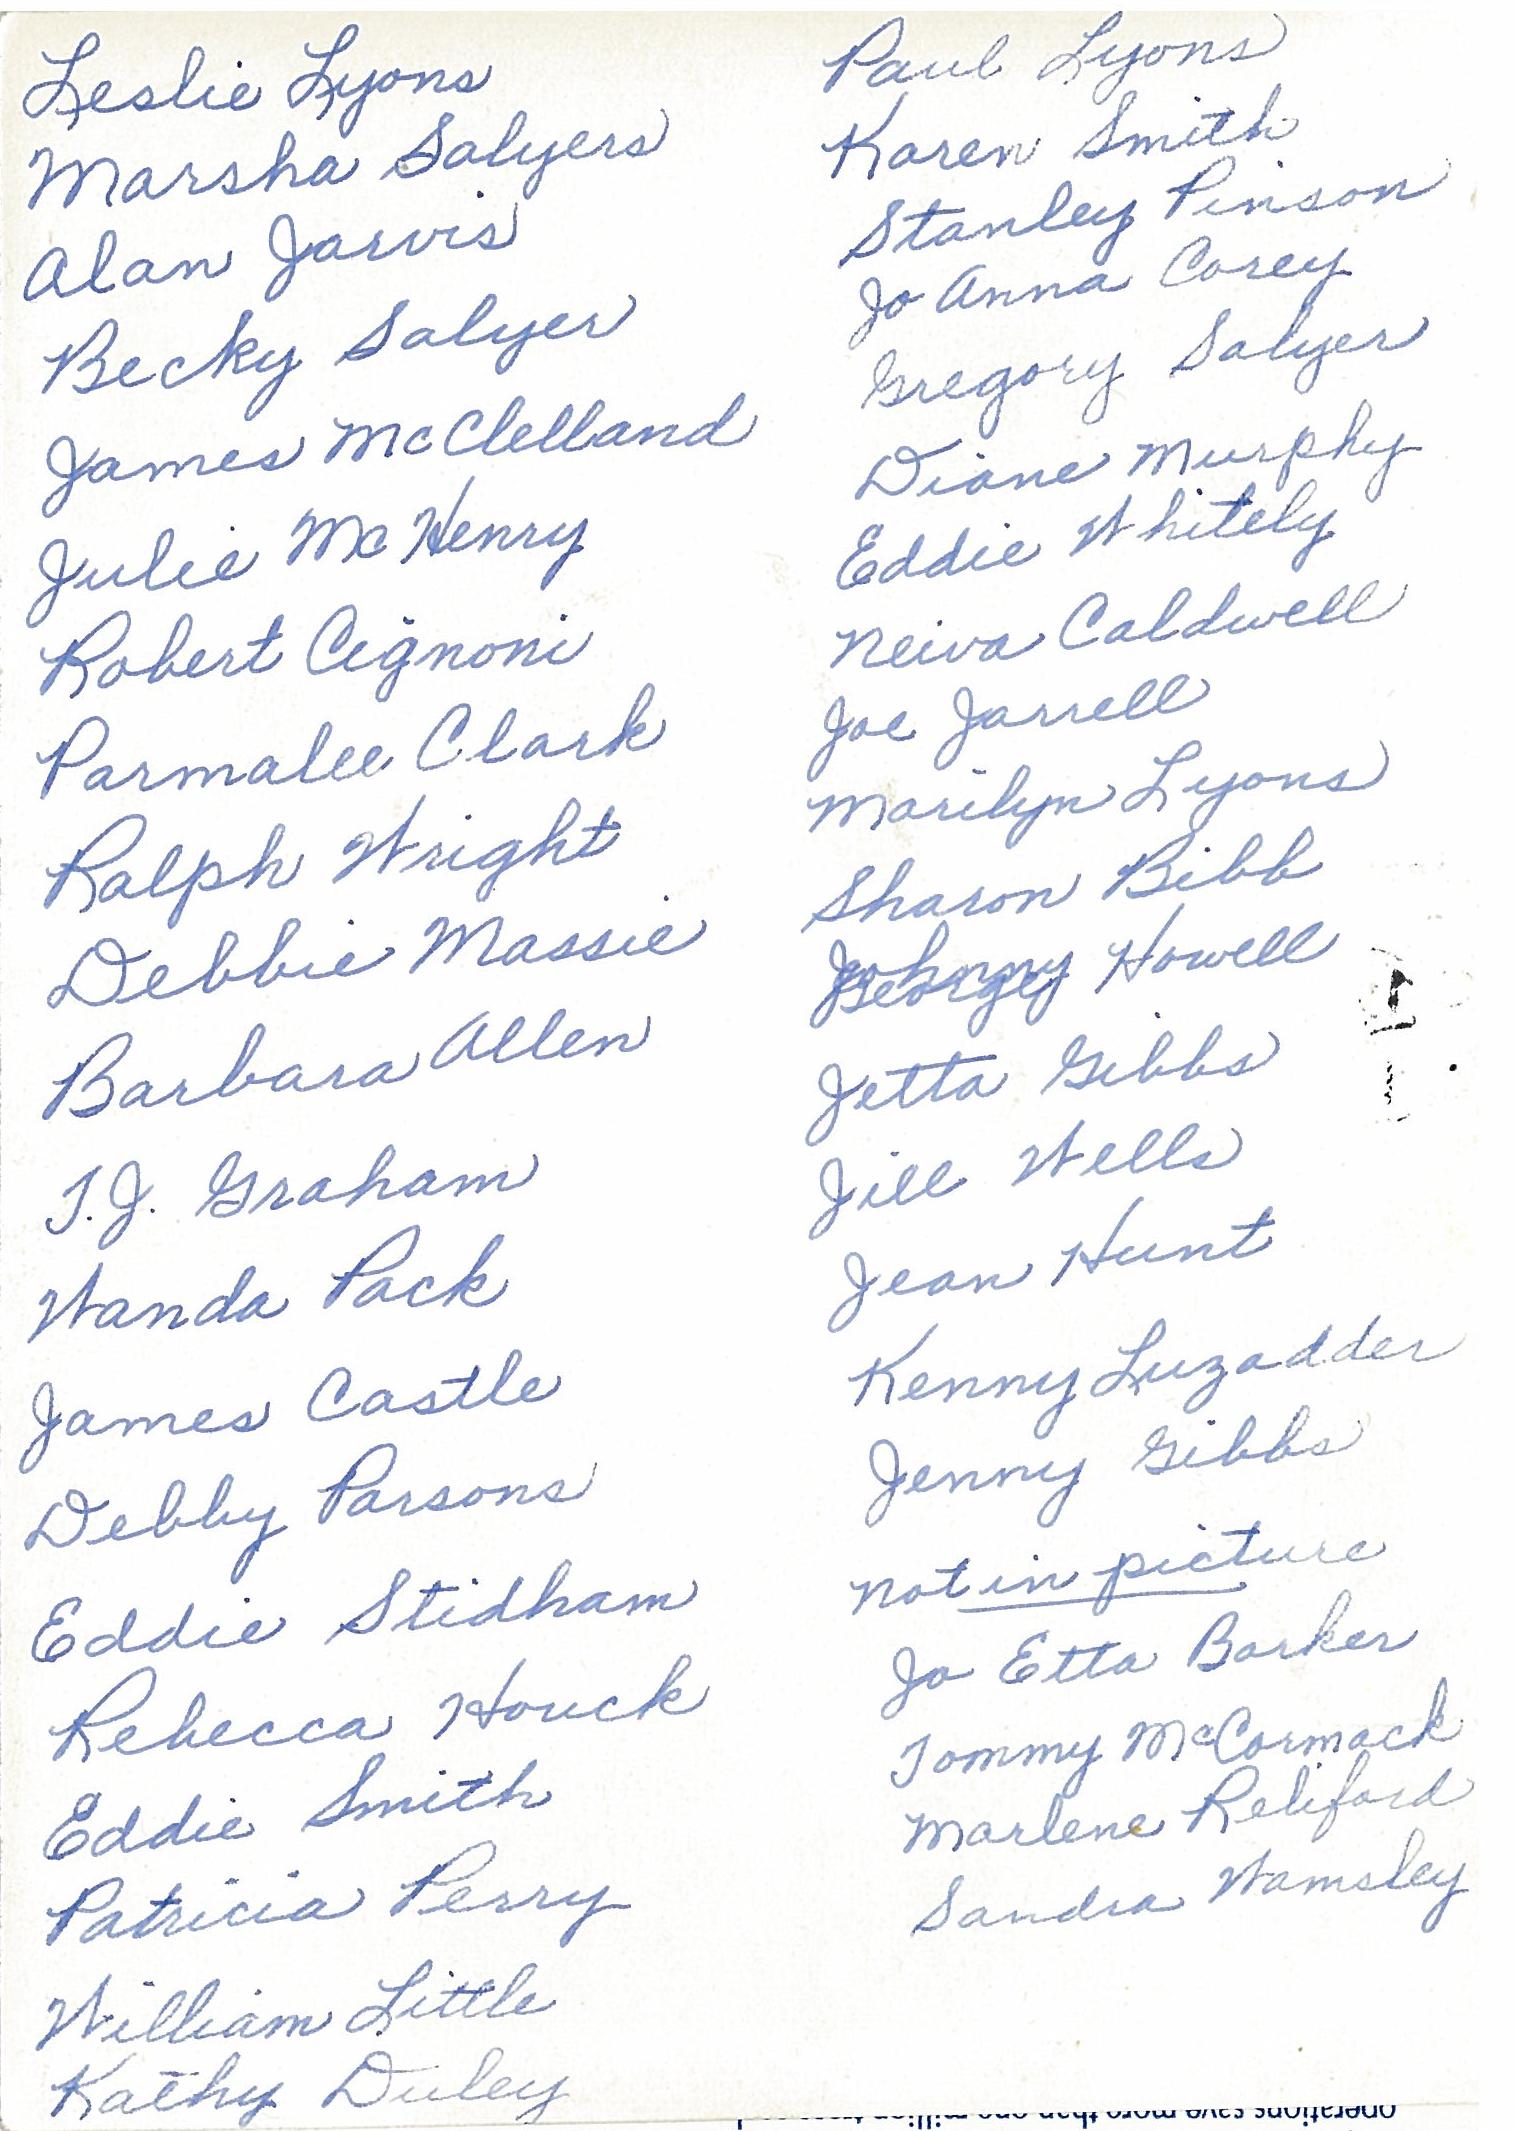 Leslie Lyons
Marsha Salyers
Alan Jarvis
Becky Salyer
James McClelland
Julie McHenry
Robert Cignoni
Parmalee Clark
Ralph Wright
Debbie Massie
Barbara Allen
T.J. Graham
Wanda Pack
James Castle
Debby Parsons
Eddie Stidham
Rebecca Houck
Eddie Smith
Patricia Perry
William Little
Kathy Duley
Paul Lyons
Karen Smith
Stanley Pinson
Jo Anna Corey
Gregory Salyer
Diane Murphy
Eddie Whitely
Neiva Caldwell
Joe Jarrell
Marilyn Lyons
Sharon Bibb
Johnny Howell
Jetta Gibbs
Jill Wells
Jean Hunt
Kenny Luzadder
Jenny Gibbs
not in picture
Jo Etta Barker
Tommy McCormack
Marlene Reliford
Sandra Wamsley
operations save more than one million